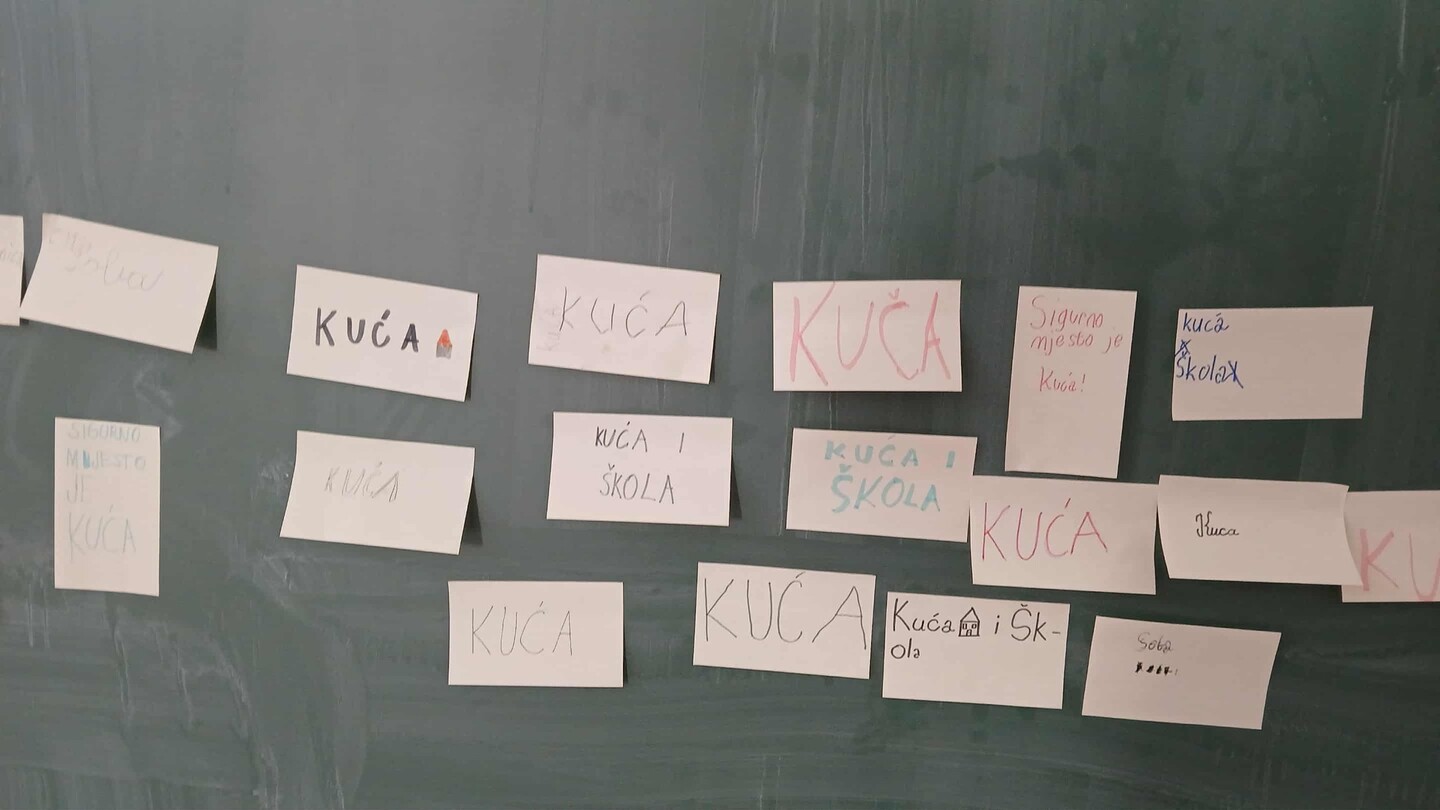 KUĆA
KUĆA
KUČA
Sigurno
mjesto je
Kuća!
kuća
Škola
SIGURNO
MIJESTO
JE
KUĆA
KUĆA
KUĆA I
ŠKOLA
KUĆA I
ŠKOLA
KUĆA
Kuca
KU
KUĆA
KUĆA
Kuća i Šk-
ola
Soba